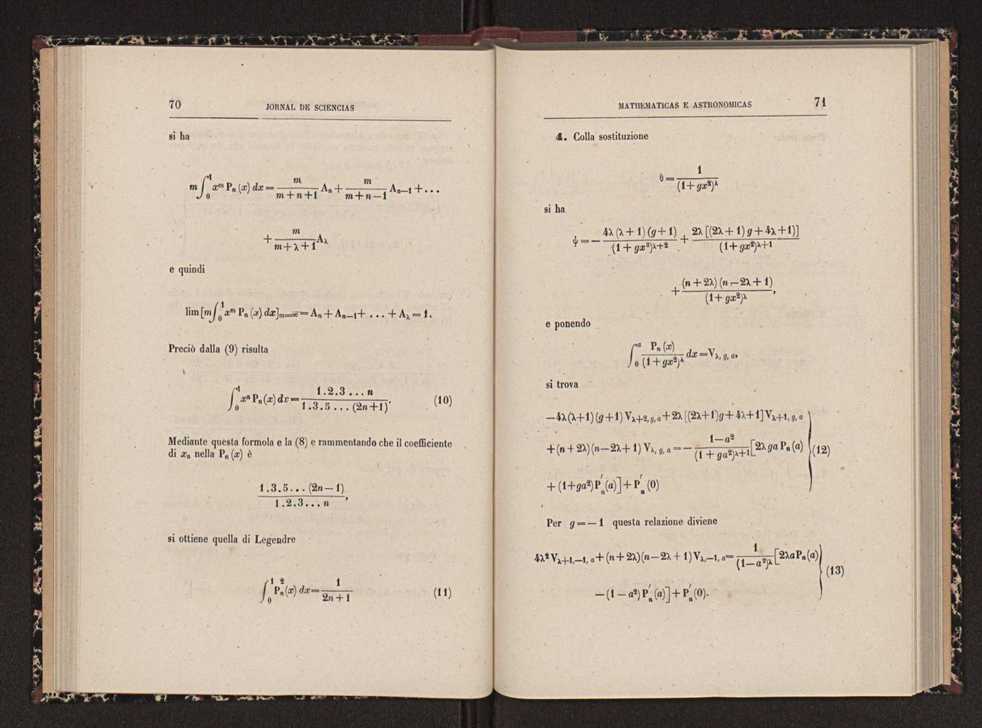 70 JORNAL DE SCIENCIAS
si ha
m∫₀¹ xᵐ Pₙ (x) dx = m/(m+n+1) Aₙ + m/(m+n−1) Aₙ₋₁ + ...
+ m/(m+λ+1) A_λ
e quindi
lim [m∫₀¹ xᵐ Pₙ (x) dx]ₘ₌∞ = Aₙ + Aₙ₋₁ + ... + A_λ = 1.
Preciò dalla (9) risulta
∫₀¹ xⁿ Pₙ(x) dx = 1.2.3 ... n / 1.3.5 ... (2n+1). (10)
Mediante questa formola e la (8) e rammentando che il coefficiente
di xₙ nella Pₙ (x) è
1.3.5... (2n−1) / 1.2.3... n,
si ottiene quella di Legendre
∫₀¹ P²ₙ(x) dx = 1/(2n+1) (11)
MATHEMATICAS E ASTRONOMICAS 71
4. Colla sostituzione
θ = 1/(1+gx²)^λ
si ha
ψ = − 4λ (λ+1) (g+1)/(1+gx²)^(λ+2) + 2λ [(2λ+1) g+4λ+1)]/(1+gx²)^(λ+1)
+ (n+2λ) (n−2λ+1)/(1+gx²)^λ,
e ponendo
∫₀ᵃ Pₙ (x)/(1+gx²)^λ dx = V_λ, g, a,
si trova
−4λ(λ+1) (g+1) V_λ+2, g, a + 2λ [(2λ+1)g+4λ+1] V_λ+1, g, a
+ (n+2λ) (n−2λ+1) V_λ, g, a = − (1−a²)/(1+ga²)^(λ+1) [2λ ga Pₙ (a) (12)
+ (1+ga²) P′ₙ(a)] + P′ₙ (0)
Per g = −1 questa relazione diviene
4λ² V_λ+1,−1, a + (n+2λ) (n−2λ+1) V_λ,−1, a = 1/(1−a²)^λ [2λaPₙ(a) (13)
− (1−a²) P′ₙ (a)] + P′ₙ (0).